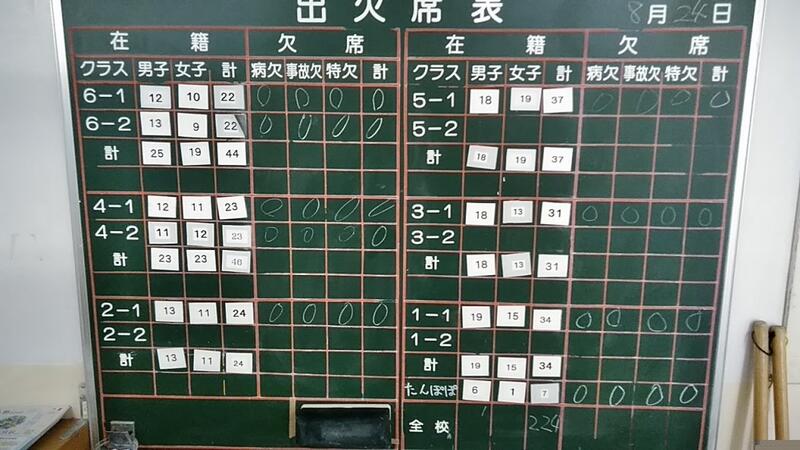 出欠席表 8月24日
在籍 欠席
クラス 男子 女子 計 病欠 事故欠 特欠 計
6-1 12 10 22 0 0 0 0
6-2 13 9 22 0 0 0 0
計 25 19 44
4-1 12 11 23 0 0 0 0
4-2 11 12 23 0 0 0 0
計 23 23 46
2-1 13 11 24 0 0 0 0
2-2
計 13 11 24
在籍 欠席
クラス 男子 女子 計 病欠 事故欠 特欠 計
5-1 18 19 37 0 0 0 0
5-2
計 18 19 37
3-1 18 13 31 0 0 0 0
3-2
計 18 13 31
1-1 19 15 34 0 0 0 0
1-2
計 19 15 34
たんぽぽ 6 1 7 0 0 0 0
全校 224